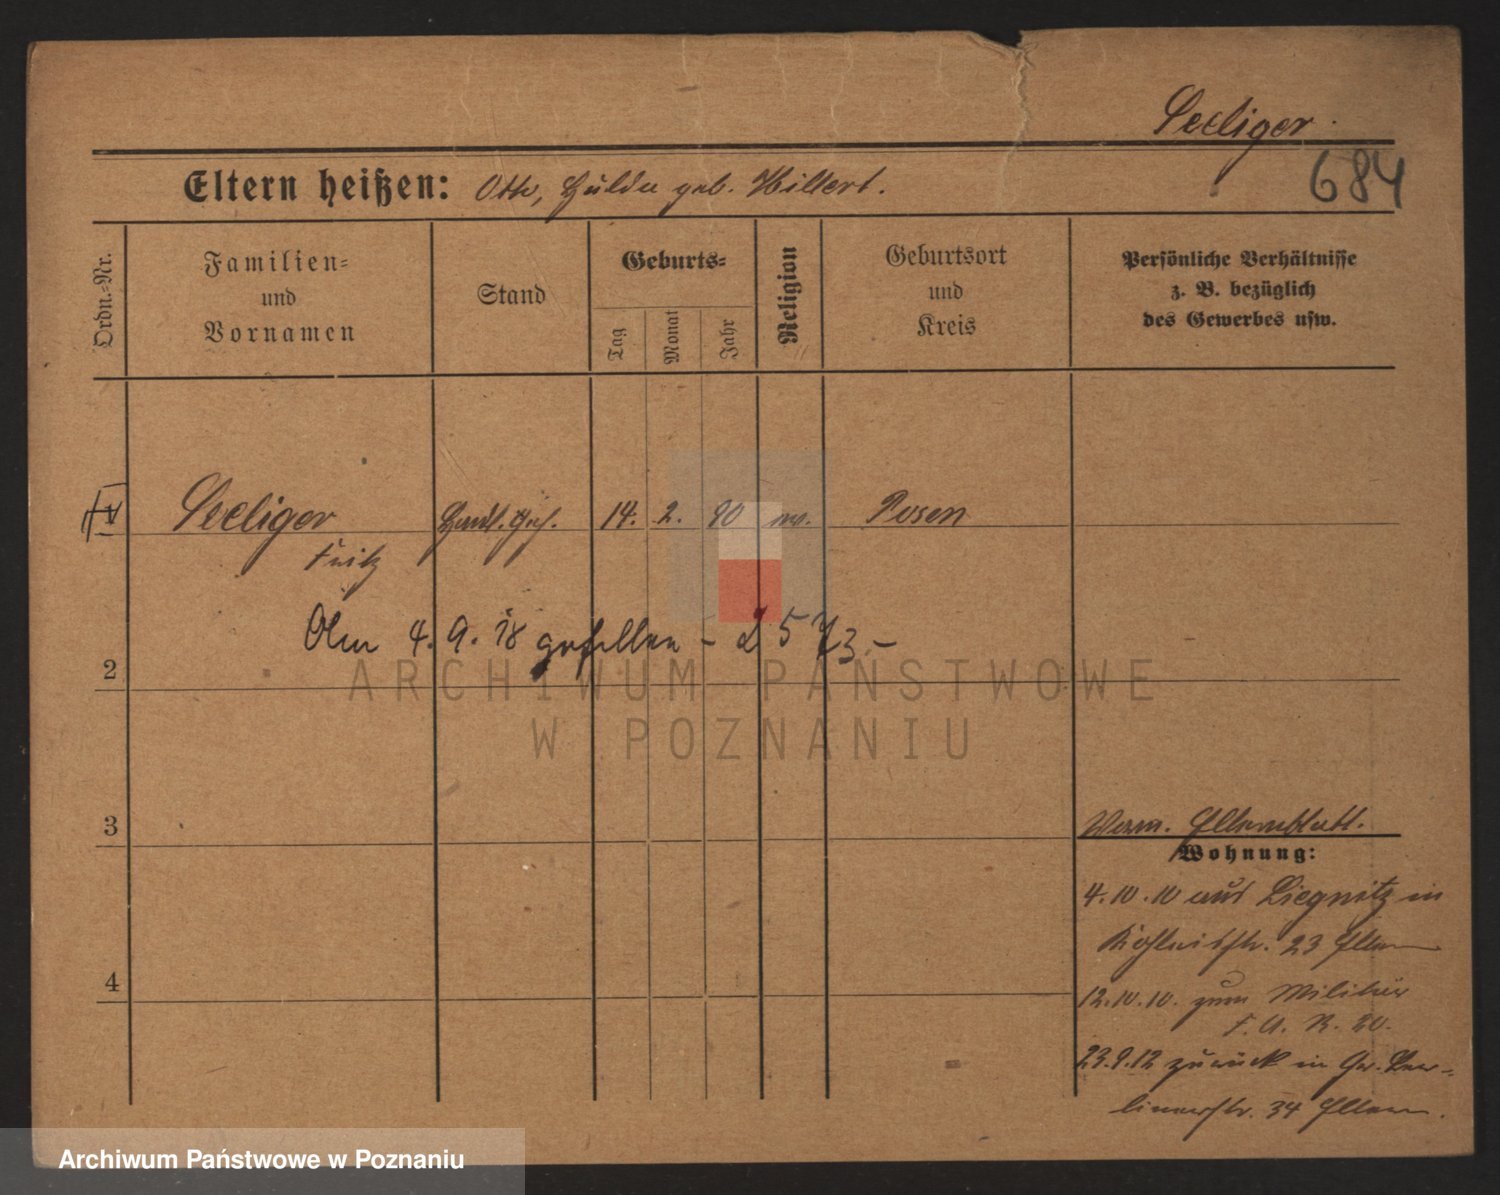 Seeliger.
684
Eltern heißen: Otto, Hulda geb. Hillert.
Ordn.-Nr.
Familien-
und
Vornamen
Stand
Geburts-
Tag
Monat
Jahr
Religion
Geburtsort
und
Kreis
Persönliche Verhältnisse
z. B. bezüglich
des Gewerbes usw.
1 Seeliger Handl. Geh. 14. 2. 90 ev. Posen
Fritz
Am 4. 9. 18 gefallen - 573.-
2
ARCHIWUM PAŃSTWOWE
W POZNANIU
3
Elternblatt.
Wohnung:
4.10.10 aus Liegnitz in
23 Eltern
4
12.10.10. zum Militär
F. A. R. 20.
23.9.12 zurück in Gr. Ber-
linerstr. 34 Eltern.
Archiwum Państwowe w Poznaniu